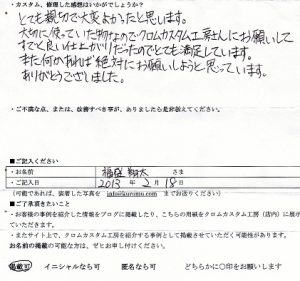 ・カスタム、修理した感想はいかがでしょうか?
とても親切で大変よかったと思います。
大切に使っていた物なのでクロムカスタム工房さんにお願いして
すごく良い仕上がりだったのでとても満足しています。
また何かあれば絶対にお願いしようと思っています。
ありがとうございました。
・ご不満な点、または、改善すべき事が、ありましたら是非教えてください。
■ご記入ください
・お名前 さま
・ご記入日 2013年2月18日
(可能であれば、装着した写真を info@kurumu.com までお送りください)
■ご了承頂きたいこと
・お客様の事例を紹介した情報をブログに掲載したり、こちらの用紙をクロムカスタム工房(店内)に展示
ていただきます。
・またサイト上で、クロムカスタム工房を紹介する事例として掲載させていただく可能性があります。
お名前の掲載の可能な方は、ぜひお声付けください。
掲載可 イニシャルなら可 匿名なら可 どちらかに○印をお願いします